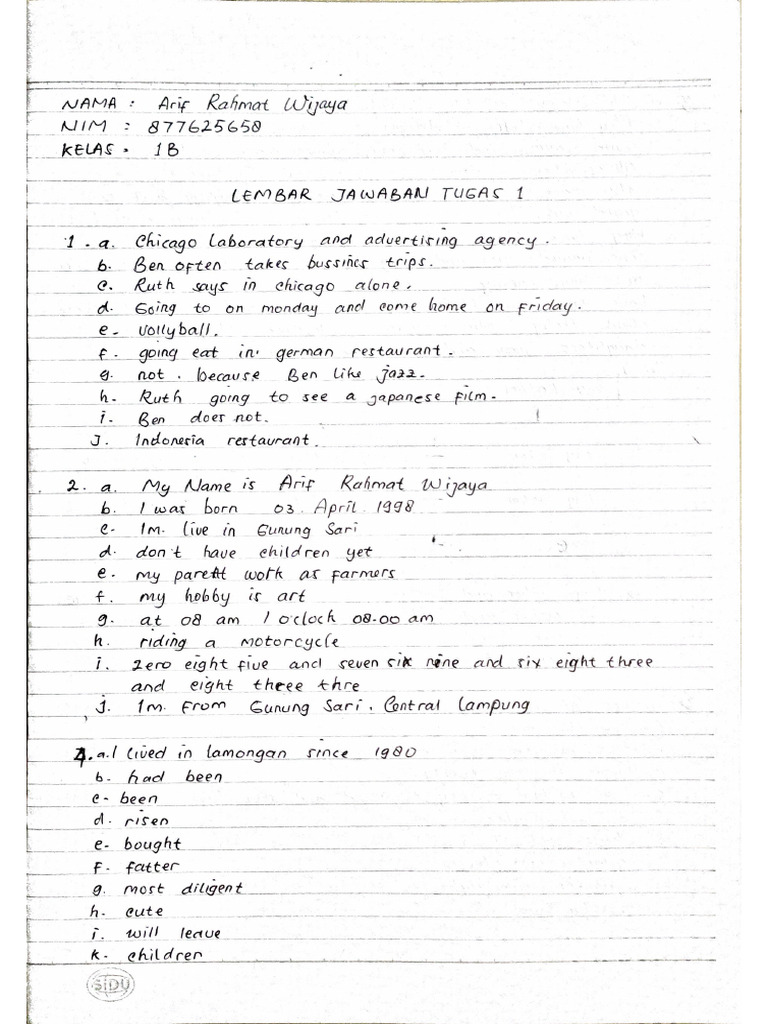 NAMA : Arif Rahmat Wijaya
NIM : 877625658
KELAS : 1B
LEMBAR JAWABAN TUGAS 1
1. a. Chicago laboratory and advertising agency.
b. Ben often takes bussines trips.
c. Ruth says in chicago alone.
d. Going to on monday and come home on friday.
e. vollyball.
f. going eat in german restaurant.
g. not. because Ben like jazz.
h. Ruth going to see a japanese film.
i. Ben does not.
J. Indonesia restaurant.
2. a. My Name is Arif Rahmat Wijaya
b. I was born 03 April 1998
c. Im live in Gunung Sari
d. don't have children yet
e. my parent work as farmers
f. my hobby is art
g. at 08 am / o'clock 08.00 am
h. riding a motorcycle
i. zero eight five and seven six nine and six eight three
and eight three thre
j. Im From Gunung Sari. Central Lampung
4. a. I lived in lamongan since 1980
b. had been
c. been
d. risen
e. bought
f. fatter
g. most diligent
h. cute
i. will leave
k. children
SiDU